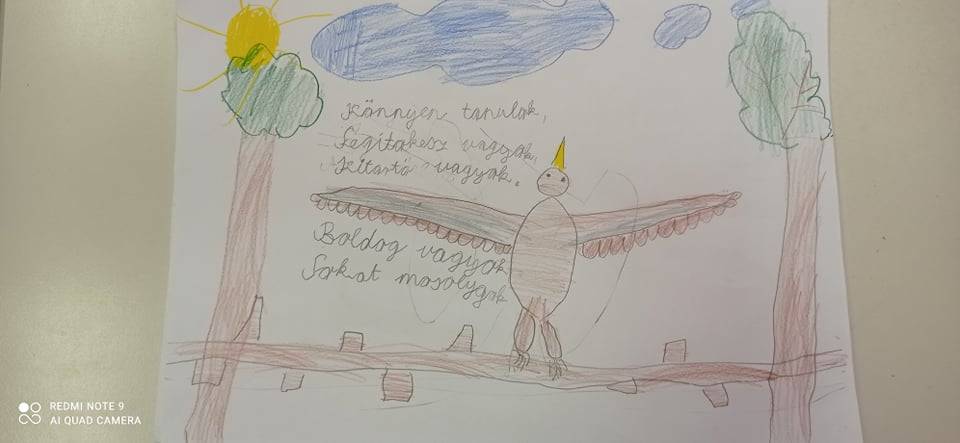 Könnyen tanulok,
Segítőkész vagyok,
Kitartó vagyok.
Boldog vagyok
Sokat mosolygok
REDMI NOTE 9
AI QUAD CAMERA